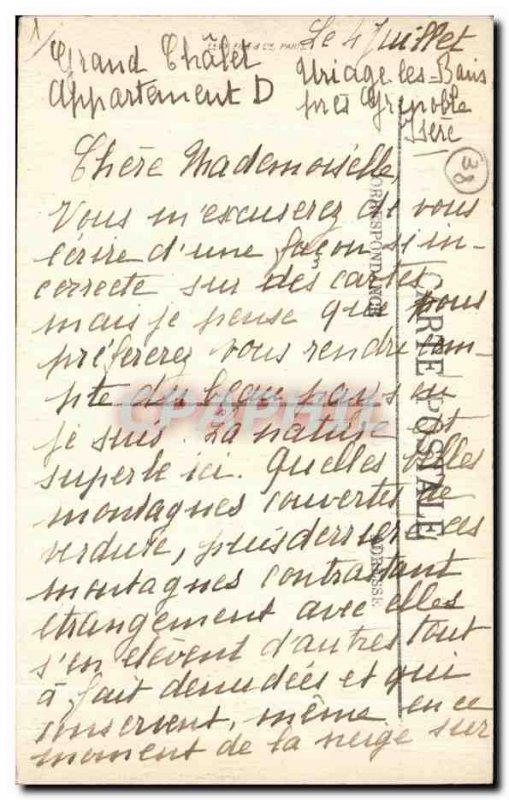 1)
LEVY FILS & Cie, PARIS
Le 4 Juillet
Grand Châlet
Appartement D
Uriage-les-Bains
près Grenoble
Isère
38
Chère Mademoiselle,
Vous m'excuserez de vous
écrire d'une façon si in-
correcte sur des cartes
mais je pense que vous
préférerez vous rendre com-
pte du beau pays où
je suis. La nature est
superbe ici. Quelles belles
montagnes couvertes de
verdure, puis derrière ces
montagnes contrastant
étrangement avec elles
s'en élèvent d'autres tout
à fait denudées et qui
conservent, même en ce
moment de la neige sur
CORRESPONDANCE
CARTE POSTALE
ADRESSE
CPAPHIL